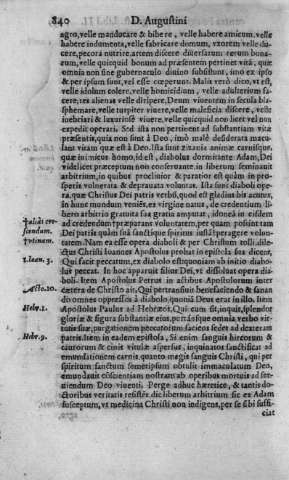 840 D. Augustini
agro, velle manducare & bibere, velle habere amicum, velle
habere indumenta, velle fabricare domum, vxorem velle du-
cere, pecora nutrire, artem discere diuersarum rerum bona-
rum, velle quicquid bonum ad præsentem pertinet vitā, quæ
omnia non sine gubernaculo diuino subsistunt, imo ex ipso
& per ipsum sunt, vel esse cœperunt. Malis verò dico, vt est,
velle idolum colere, velle homicidium, velle adulterium fa-
cere, res alienas velle diripere, Deum viuentem in secula bla-
sphemare, velle turpiter viuere, velle maleficia discere, velle
inebriari & luxuriosè viuere, velle quicquid non licet vel non
expedit operari. Sed ista non pertinent ad substantiam vitæ
præsentis, quia non sunt à Deo, imò malè desiderata macu-
lant vitam quæ est à Deo. Ista sunt zizania animæ carnisque,
quæ inimicus homo, id est, diabolus dormitante Adam, Dei
videlicet præceptum non conseruante in liberum seminauit
arbitrium, in quibus procliuior & paratior est quàm in pro-
speris volnerata & deprauata voluntas. Ista sunt diaboli ope-
ra, quæ Christus Dei patris verbū, quod est gladius bis acutus,
in hunc mundum veniēs, ex virgine natus, de credentium li-
bero arbitrio gratuita sua gratia amputat, idonea in eisdem
†aliàs cre- ad credendum †præparans voluntatem, per quam possint tam
scendum. Dei patris quàm sancti ipsius spiritus iustā †peragere volun-
†vtinam. tatem. Nam ea esse opera diaboli & per Christum tolli, dile-
ctus Christi Ioannes Apostolus probat in epistola sua dicens,
1.Ioan.3. Qui facit peccatum, ex diabolo est, quoniam ab initio diabo-
lus peccat. In hoc apparuit filius Dei, vt dissoluat opera dia-
boli. Item Apostolus Petrus in actibus Apostolorum inter
Acto.10. cætera de Christo ait, Qui pertransiuit benefaciendo & sanan
do omnes oppressos à diabolo, quoniā Deus erat in illo. Item
Hebr.1. Apostolus Paulus ad Hebræos, Qui cum sit, inquit, splendor
gloriæ & figura substantiæ eius, portāsque omnia verbo vir-
tutis suæ, purgationem peccatorum faciens sedet ad dexteram
Hebr.9. patris. Item in eadem epistola, Si enim sanguis hircorum &
taurorum & cinis vitulæ aspersus, inquinatos sanctificat ad
emundationem carnis, quanto magis sanguis Christi, qui per
spiritum sanctum semetipsum obtulit immaculatum Deo,
emundauit conscientiam nostram ab operibus mortuis ad ser-
uiendum Deo viuenti. Perge adhuc hæretice, & tantis do-
ctoribus veritatis resiste, dic liberum arbitrium sic ex Adam
susceptum, vt medicina Christi non indigens, per se sibi suffi-
ciat